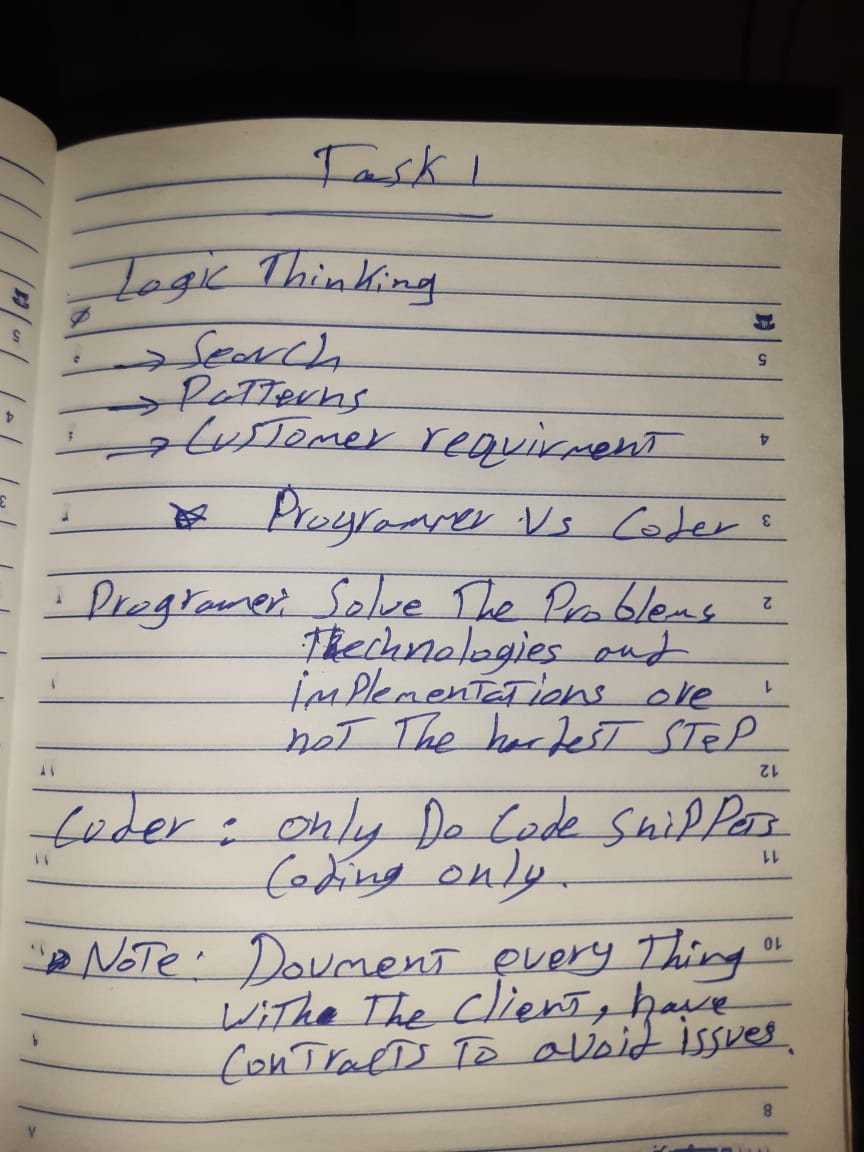 Task 1
Logic Thinking
→ Search
→ Patterns
→ Customer requirment
Programmer Vs Coder
Programer: Solve The Problems
Thechnologies and
implementations are
not The hardest step
Coder : only Do Code snippets
Coding only.
Note: Doument every Thing
With The Client, have
Contracts To avoid issues.
5
4
3
2
1
12
11
10
8